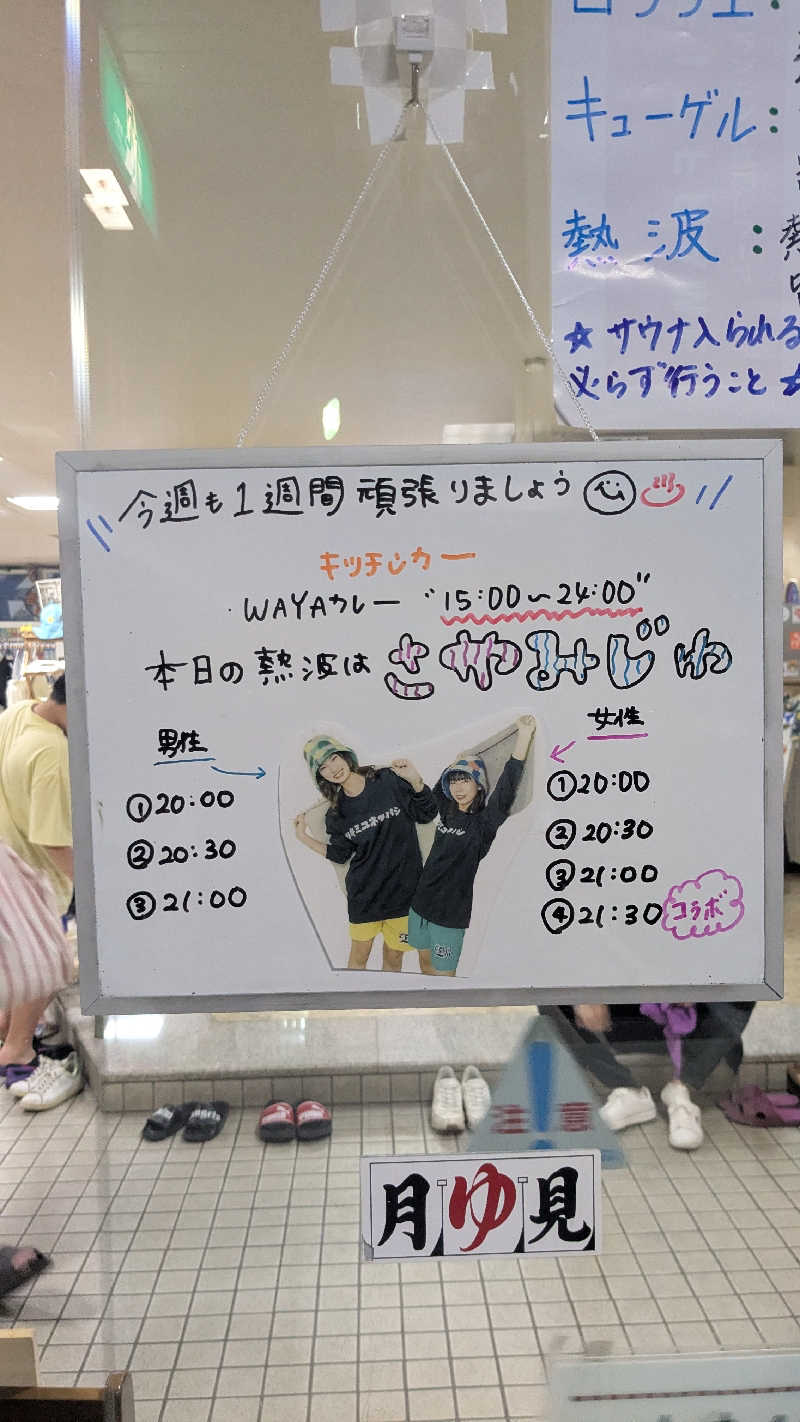 キューゲル:
熱波:
☆サウナ入られる
必らず行うこと☆
今週も1週間頑張りましょう
キッチンカー
・WAYAカレー "15:00〜24:00"
本日の熱波は ささみじゅ
男性
①20:00
②20:30
③21:00
女性
①20:00
②20:30
③21:00
④21:30 コラボ
注意
月ゆ見